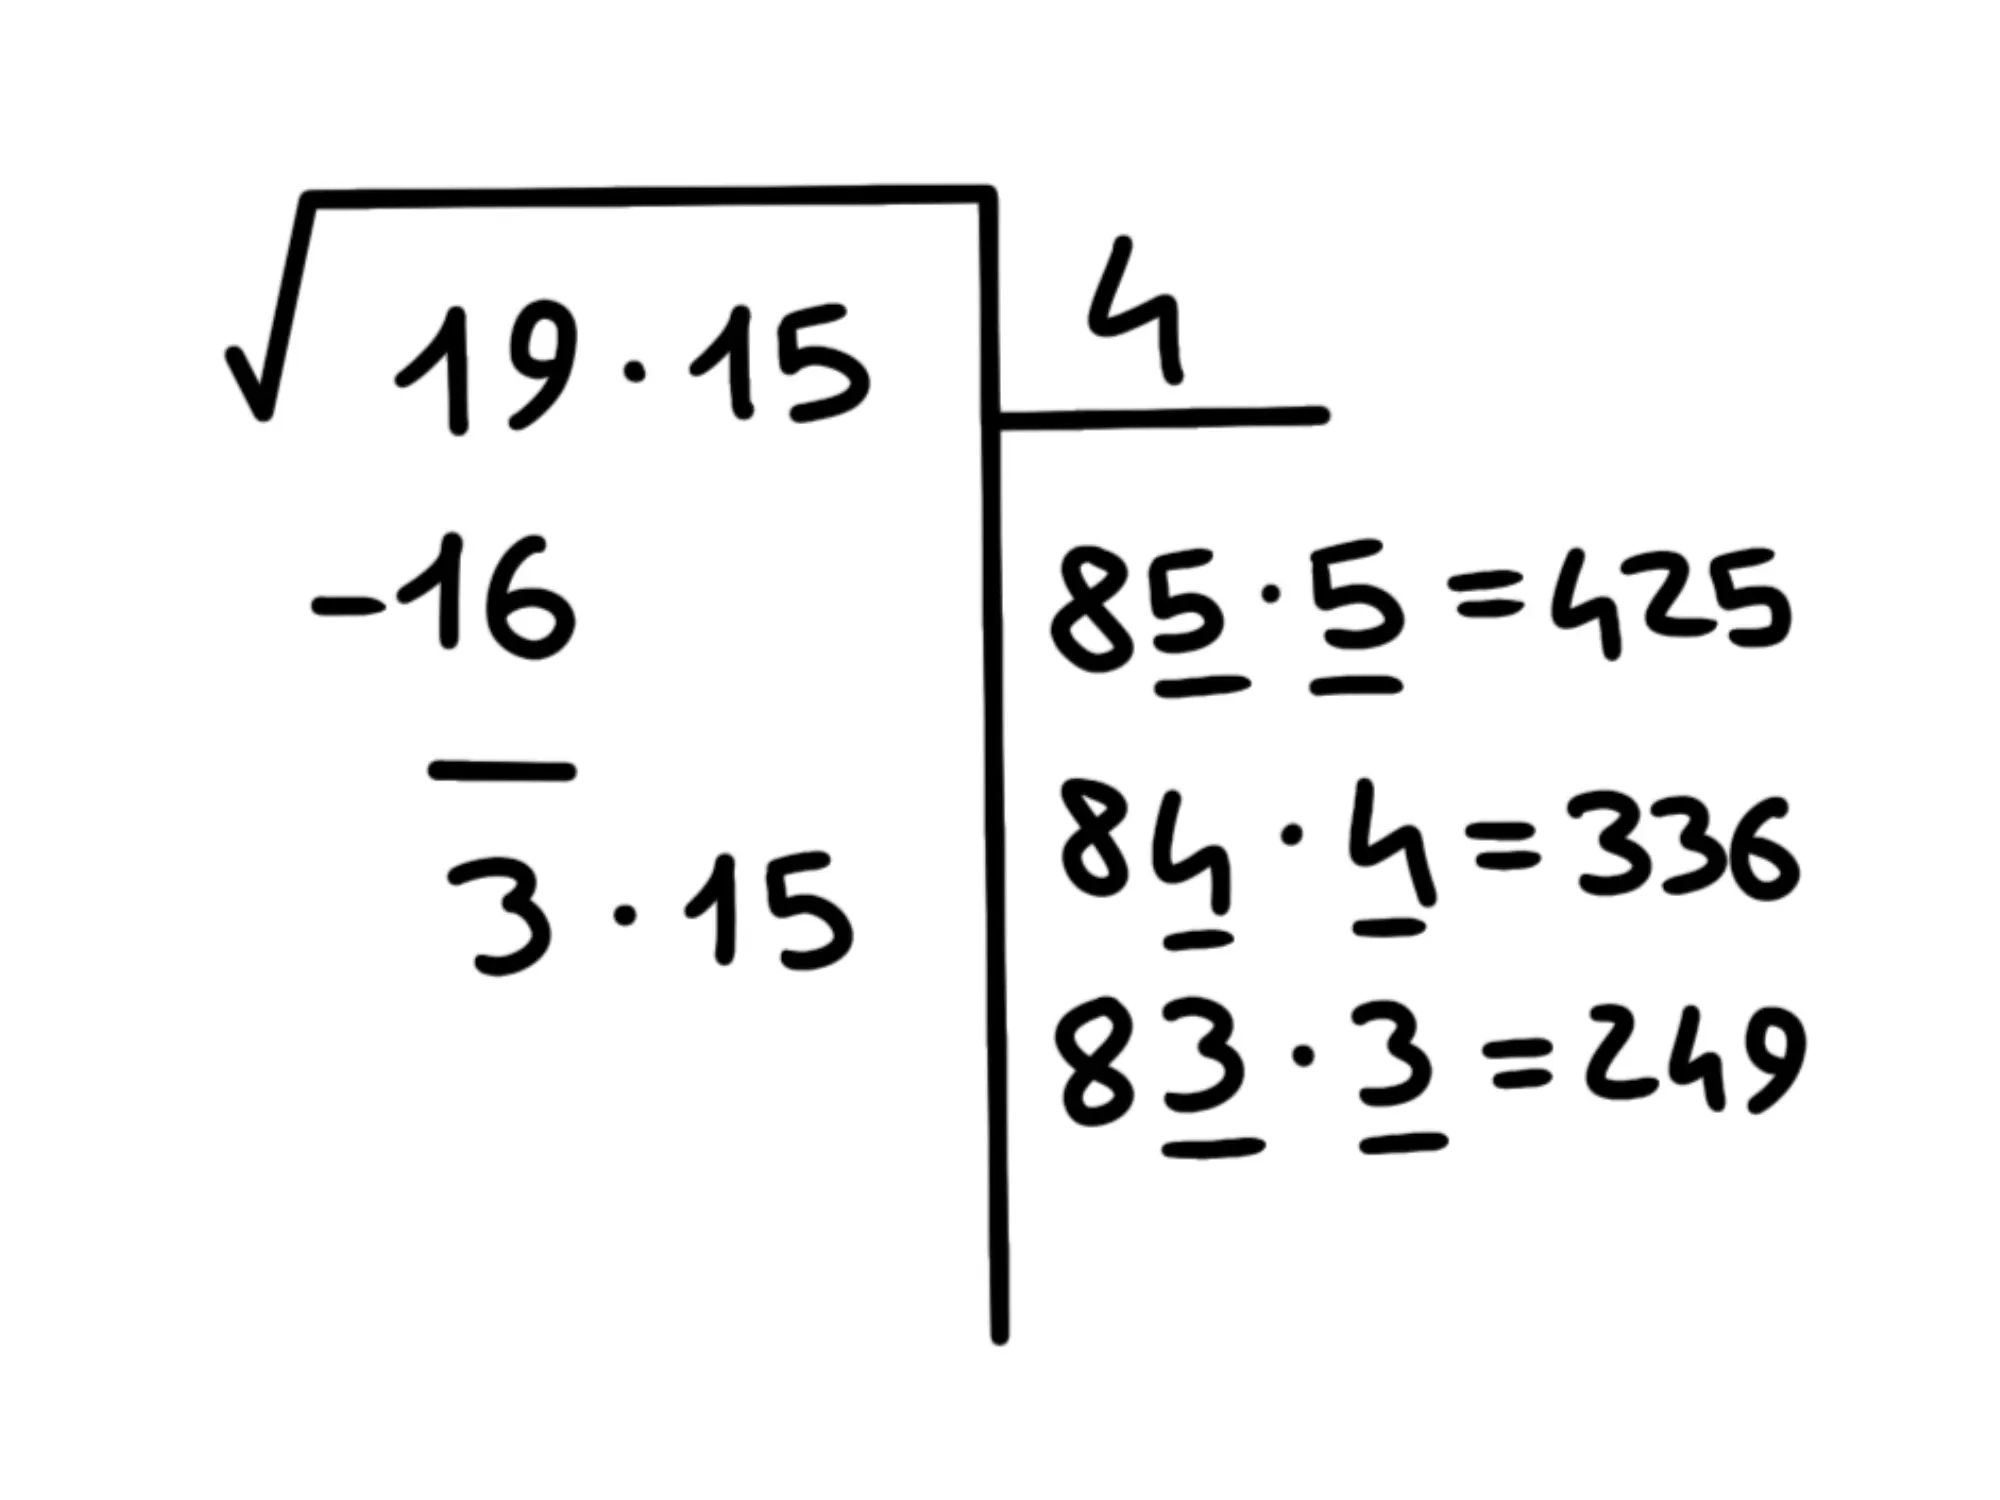 √19·15 4
-16
3·15
85·5=425
84·4=336
83·3=249